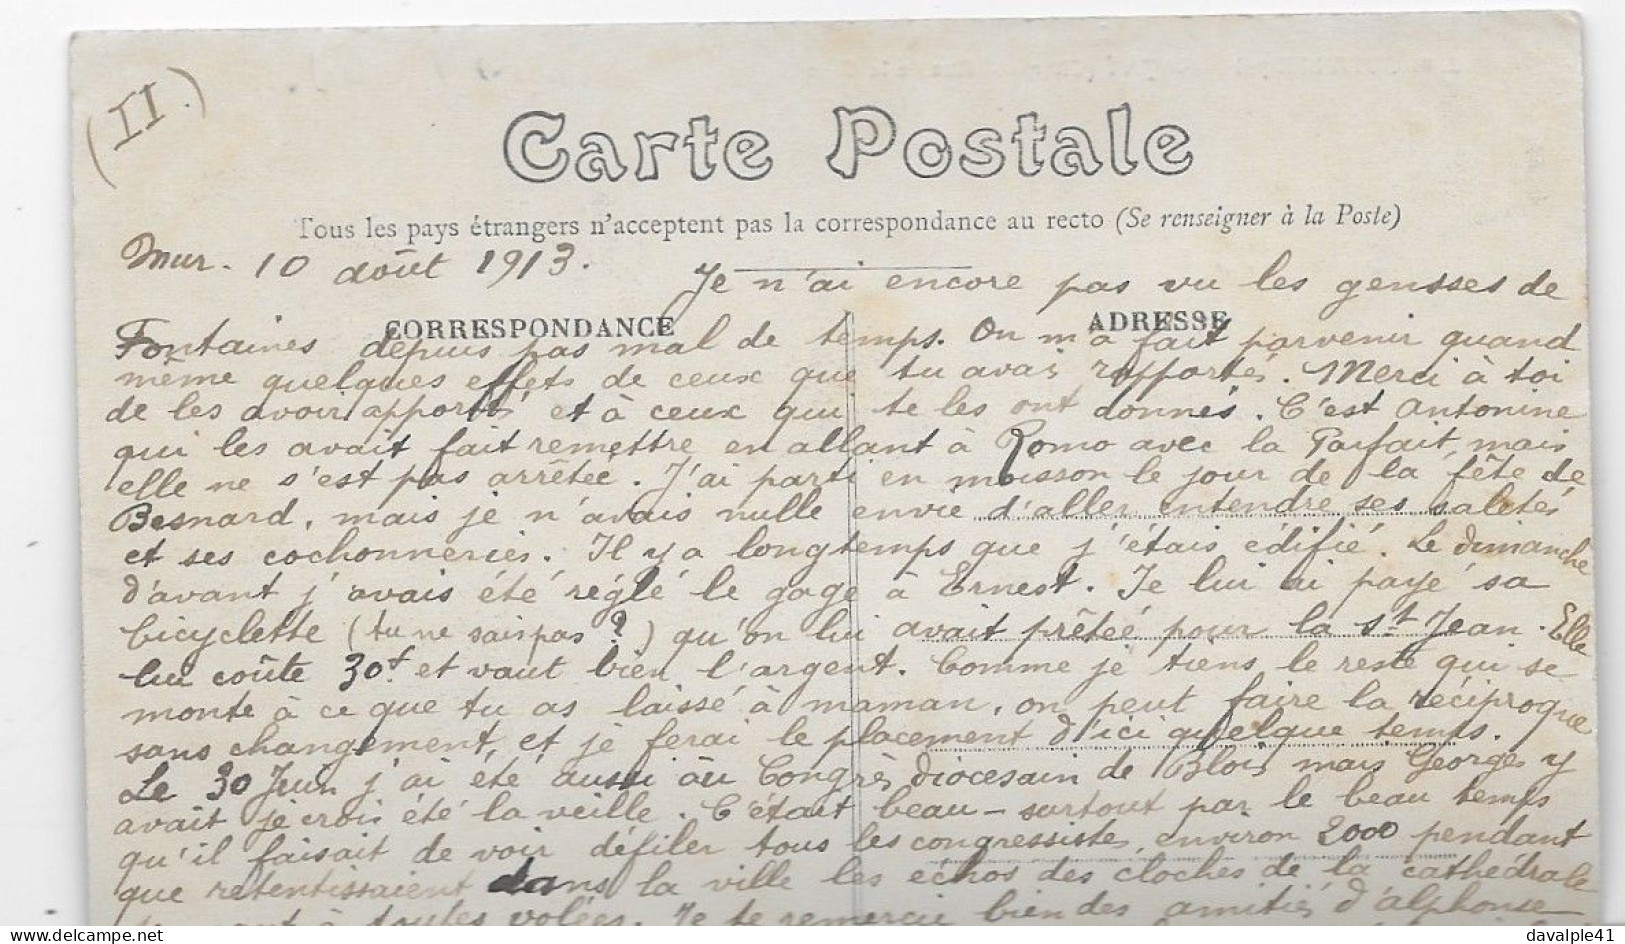 (II.)
Carte Postale
Tous les pays étrangers n'acceptent pas la correspondance au recto (Se renseigner à la Poste)
Mur. 10 août 1913.
Je n'ai encore pas vu les gensses de
CORRESPONDANCE
ADRESSE
Fontaines depuis pas mal de temps. On m'a fait parvenir quand
même quelques effets de ceux que tu avais rapportés. Merci à toi
de les avoir apportés et à ceux qui te les ont donnés. C'est Antonine
qui les avait fait remettre en allant à Romo avec la Parfait, mais
elle ne s'est pas arrêtée. J'ai parti en moisson le jour de la fête de
Besnard, mais je n'avais nulle envie d'aller entendre ses saletés
et ses cochonneries. Il y a longtemps que j'étais édifié. Le dimanche
d'avant j'avais été réglé le gage à Ernest. Je lui ai payé sa
bicyclette (tu ne sais pas ?) qu'on lui avait prêtée pour la St Jean. Elle
lui coûte 30f. et vaut bien l'argent. Comme je tiens le reste qui se
monte à ce que tu as laissé à maman, on peut faire la réciproque
sans changement, et je ferai le placement d'ici quelque temps.
Le 30 Juin j'ai été aussi au Congrès diocesain de Blois mais Georges y
avait je crois été la veille. C'était beau - surtout par le beau temps
qu'il faisait de voir défiler tous les congressistes, environ 2000 pendant
que retentissaient dans la ville les échos des cloches de la cathédrale
à toutes volées. Je te remercie bien des amitiés d'Alphonse
davalple41